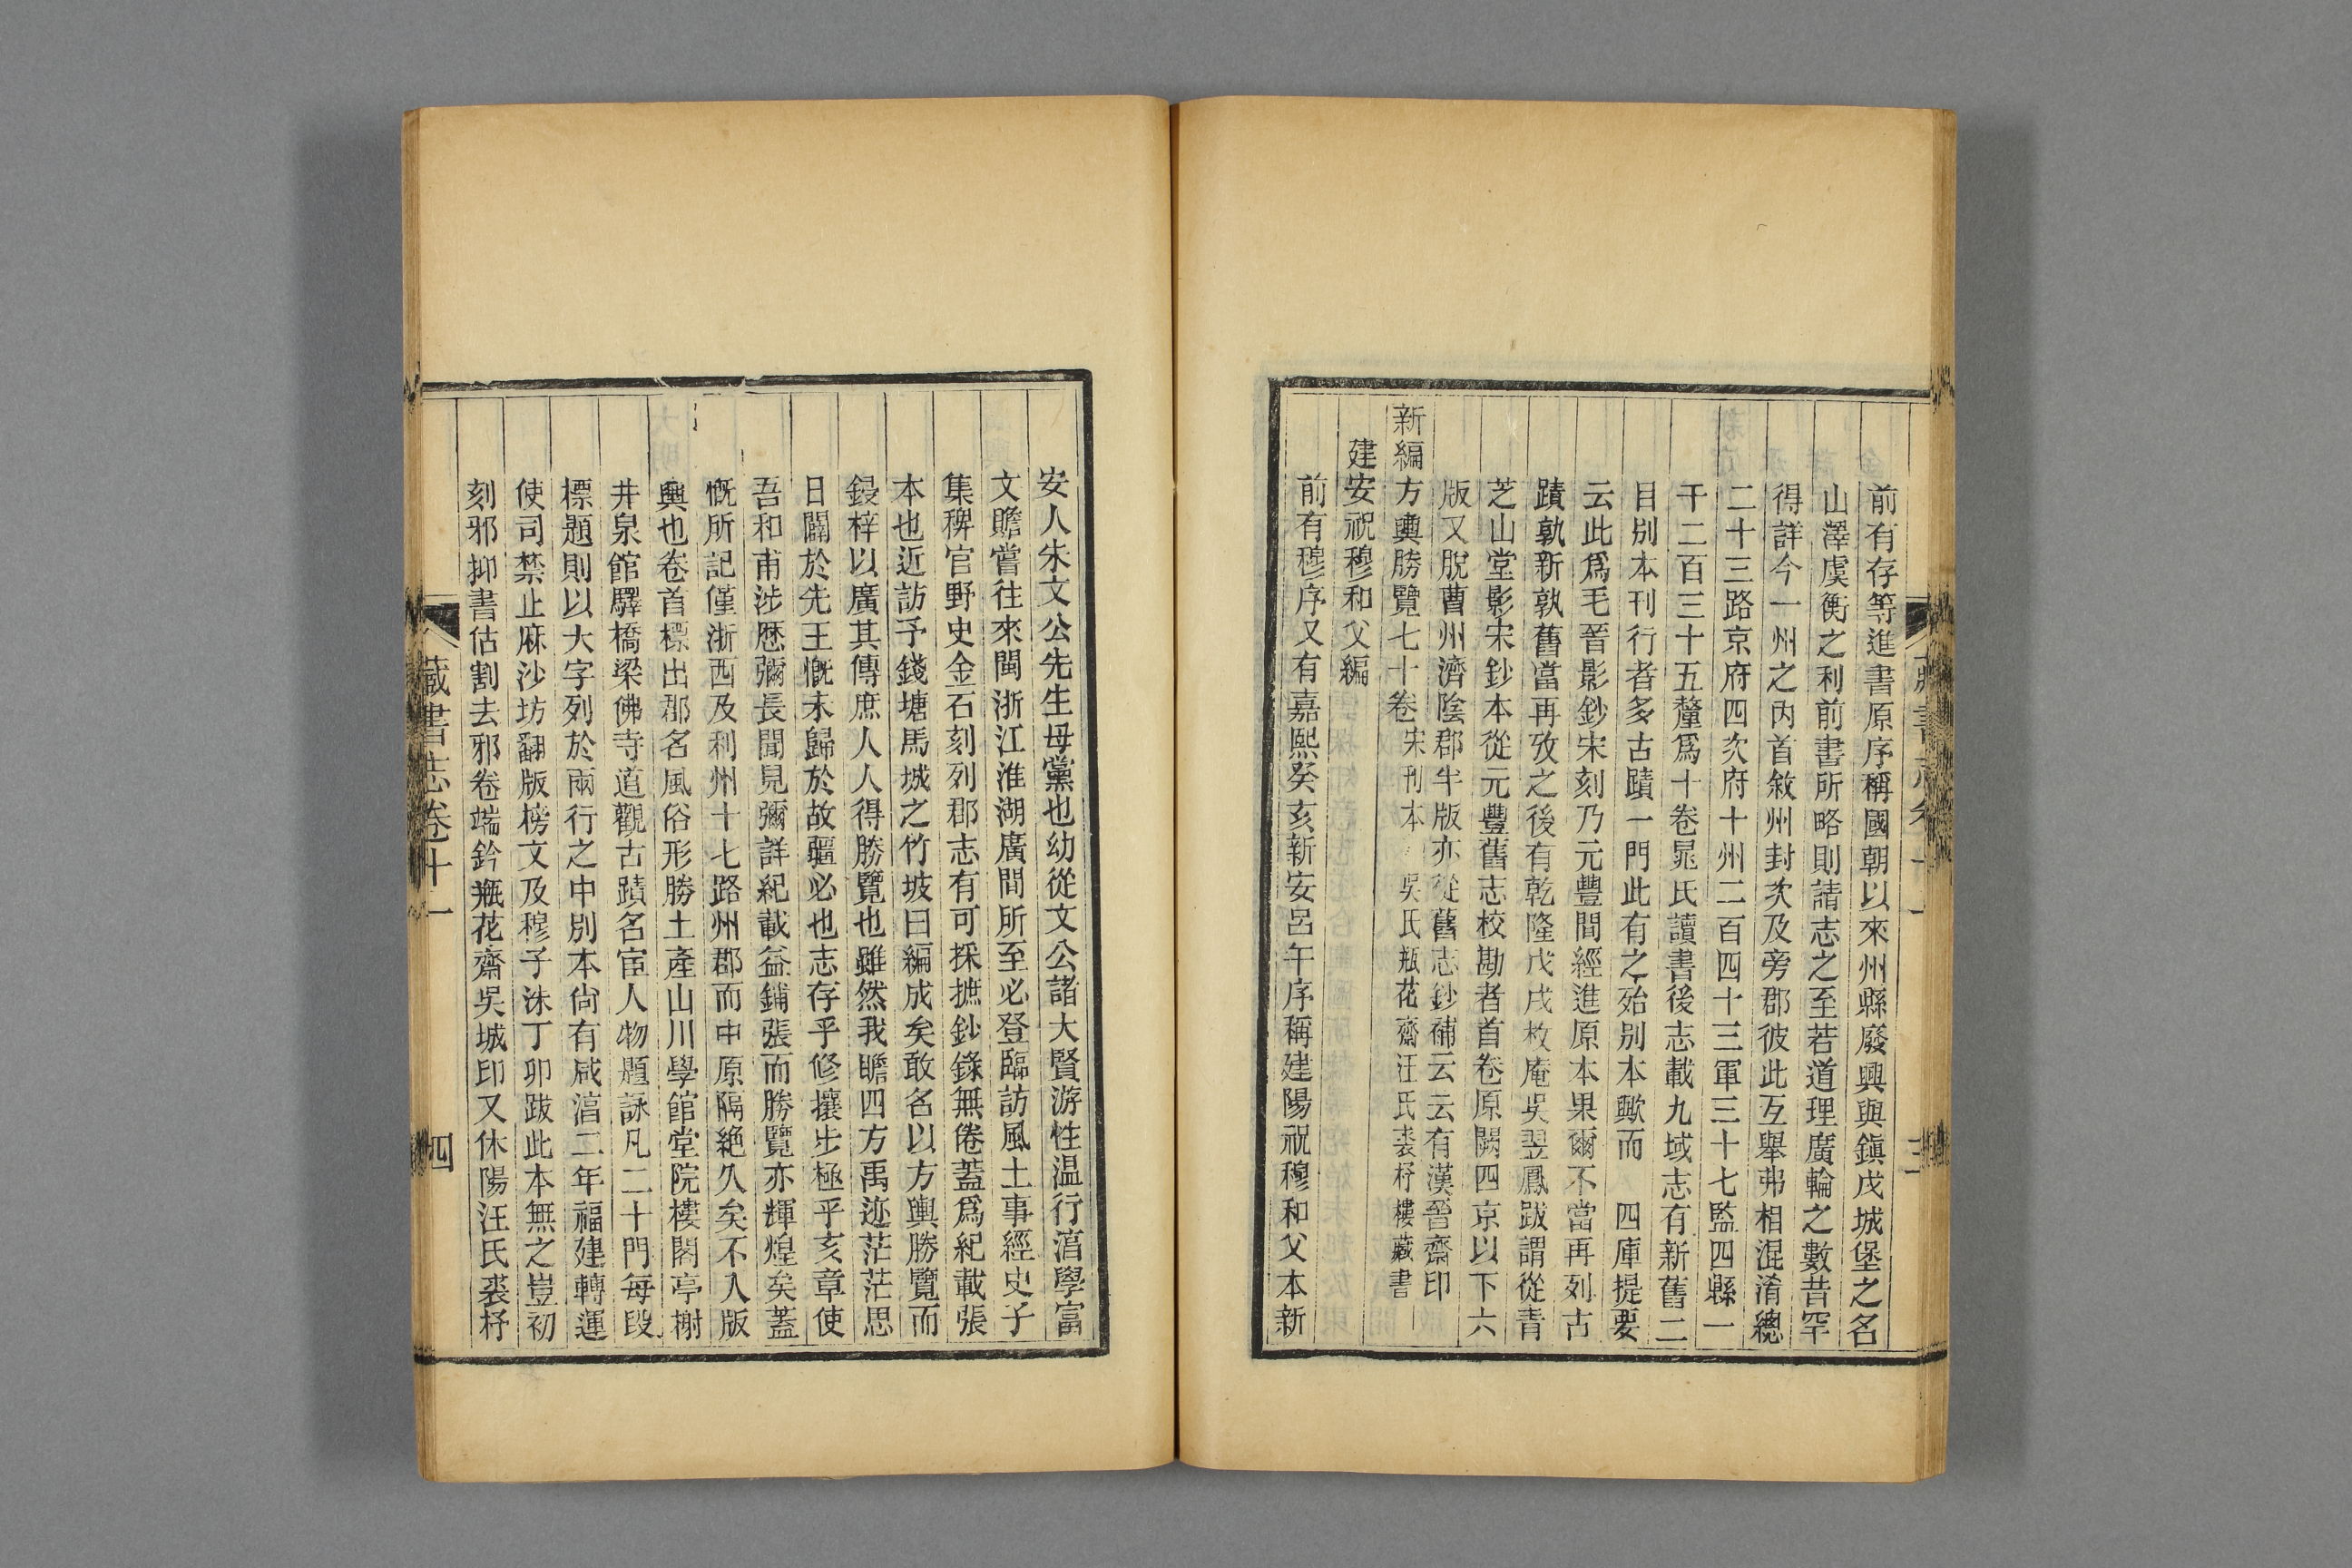 前有存等進書原序稱國朝以來州縣廢興與鎭戍城堡之名
山澤虞衡之利前書所略則請志之至若道理廣輪之數昔罕
得詳今一州之內首敘州封次及旁郡彼此互舉弗相混淆總
二十三路京府四次府十州二百四十三軍三十七監四縣一
千二百三十五釐爲十卷晁氏讀書後志載九域志有新舊二
目別本刊行者多古蹟一門此有之殆別本歟而 四庫提要
云此爲毛晉影鈔宋刻乃元豐間經進原本果爾不當再列古
蹟孰新孰舊當再攷之後有乾隆戊戌枚庵吳翌鳳跋謂從青
芝山堂影宋鈔本從元豐舊志校勘者首卷原闕四京以下六
版又脫曹州濟陰郡半版亦從舊志鈔補云云有漢晉齋印
新編方輿勝覽七十卷 宋刊本 吳氏瓶花齋汪氏裘杼樓藏書
建安祝穆和父編
前有穆序又有嘉熙癸亥新安呂午序稱建陽祝穆和父本新
藏書志卷十一 三
安人朱文公先生母黨也幼從文公諸大賢游性温行湻學富
文贍嘗往來閩浙江淮湖廣間所至必登臨訪風土事經史子
集稗官野史金石刻列郡志有可採摭鈔錄無倦蓋爲紀載張
本也近訪予錢塘馬城之竹坡曰編成矣敢名以方輿勝覽而
鋟梓以廣其傳庶人人得勝覽也雖然我瞻四方禹迹茫茫思
日闢於先王慨未歸於故疆必也志存乎修攘步極乎亥章使
吾和甫涉歷彌長聞見彌詳紀載益鋪張而勝覽亦輝煌矣蓋
慨所記僅浙西及利州十七路州郡而中原隔絶久矣不入版
輿也卷首標出郡名風俗形勝土產山川學館堂院樓閣亭榭
井泉館驛橋梁佛寺道觀古蹟名宦人物題詠凡二十門每段
標題則以大字列於兩行之中別本尙有咸湻二年福建轉運
使司禁止麻沙坊翻版榜文及穆子洙丁卯跋此本無之豈初
刻邪抑書估割去邪卷端鈐瓶花齋吳城印又休陽汪氏裘杼
藏書志卷十一 四